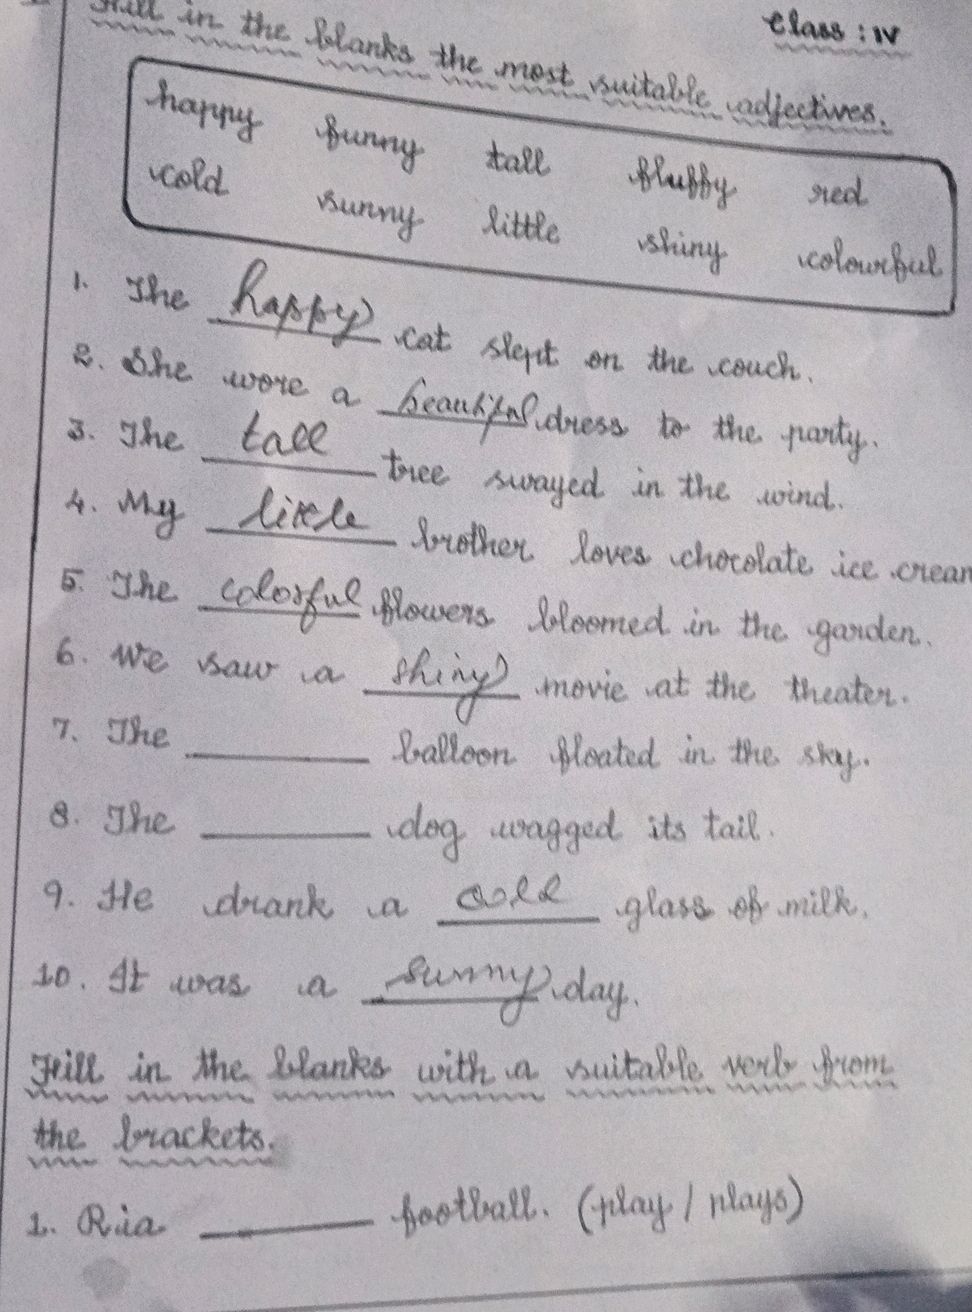 Fill in the blanks the most suitable adjectives.
Class : IV
happy funny tall fluffy red
cold sunny little shiny colourful
1. The happy cat slept on the couch.
2. She wore a beautiful dress to the party.
3. The tall tree swayed in the wind.
4. My little brother loves chocolate ice cream
5. The colorful flowers bloomed in the garden.
6. We saw a shiny movie at the theater.
7. The ________ balloon floated in the sky.
8. The ________ dog wagged its tail.
9. He drank a cold glass of milk.
10. It was a sunny day.
Fill in the blanks with a suitable verb from
the brackets.
1. Ria ________ football. (play / plays)